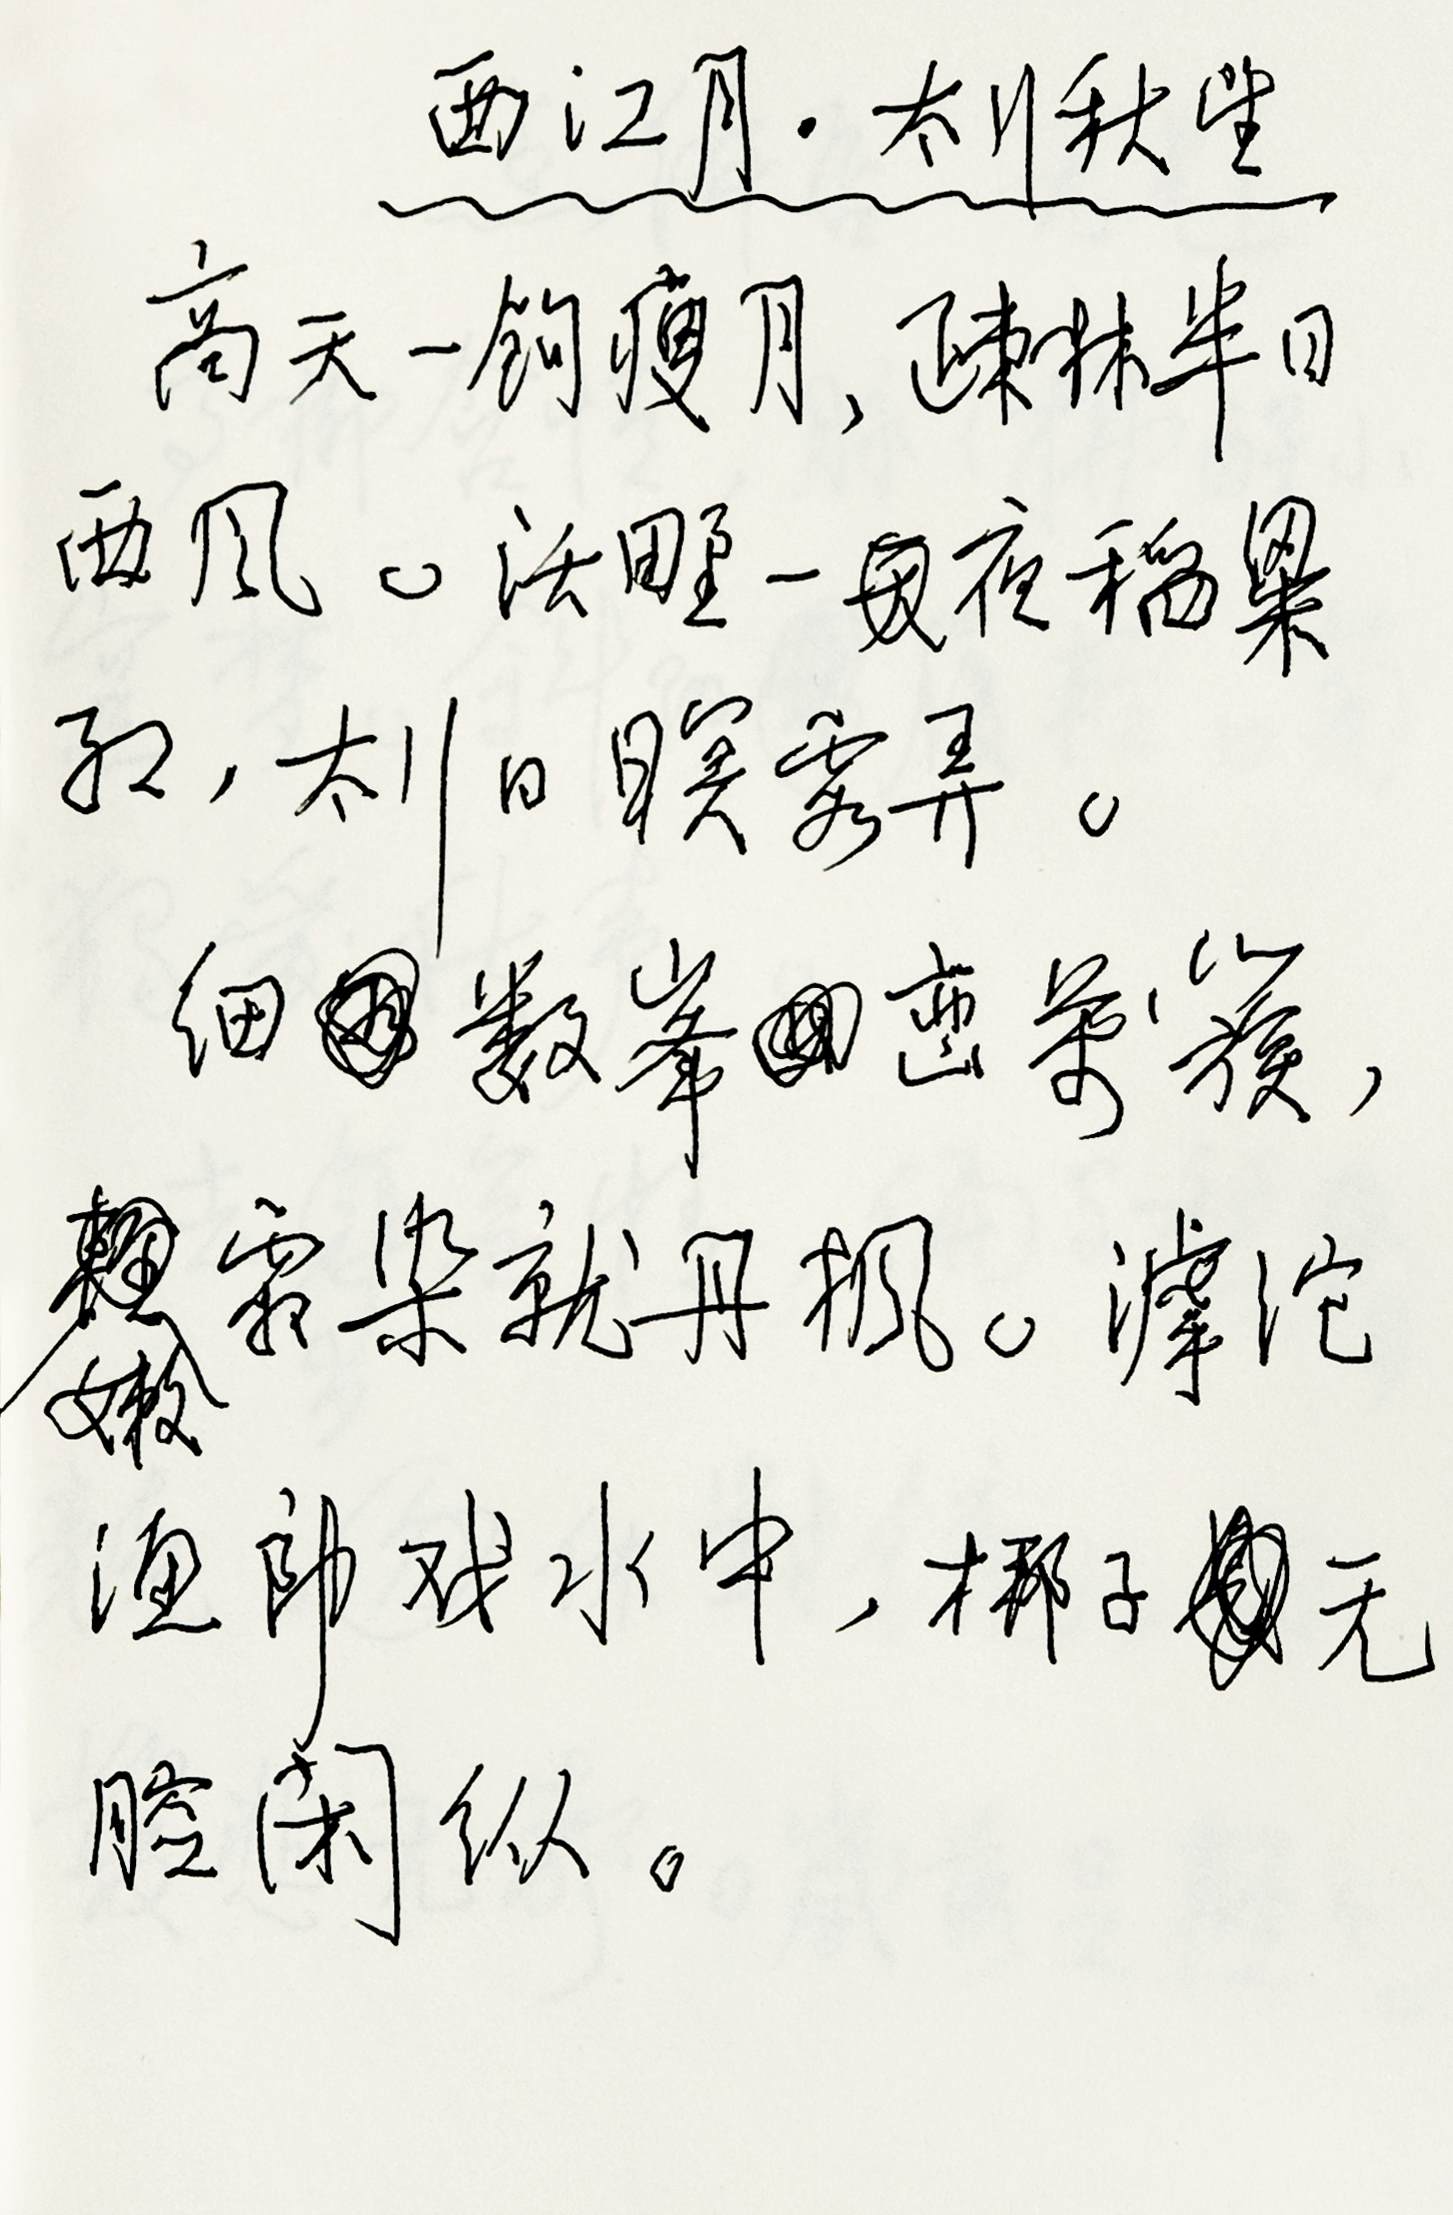 西江月·太川秋望
高天一钩瘦月，疎林半日
西风。沃野一夜稻粱
红，太川日暝雾弄。
细数峰峦万簇，
霜染就丹枫。滹沱
嫩
渔郎戏水中，梆子无
腔闲纵。